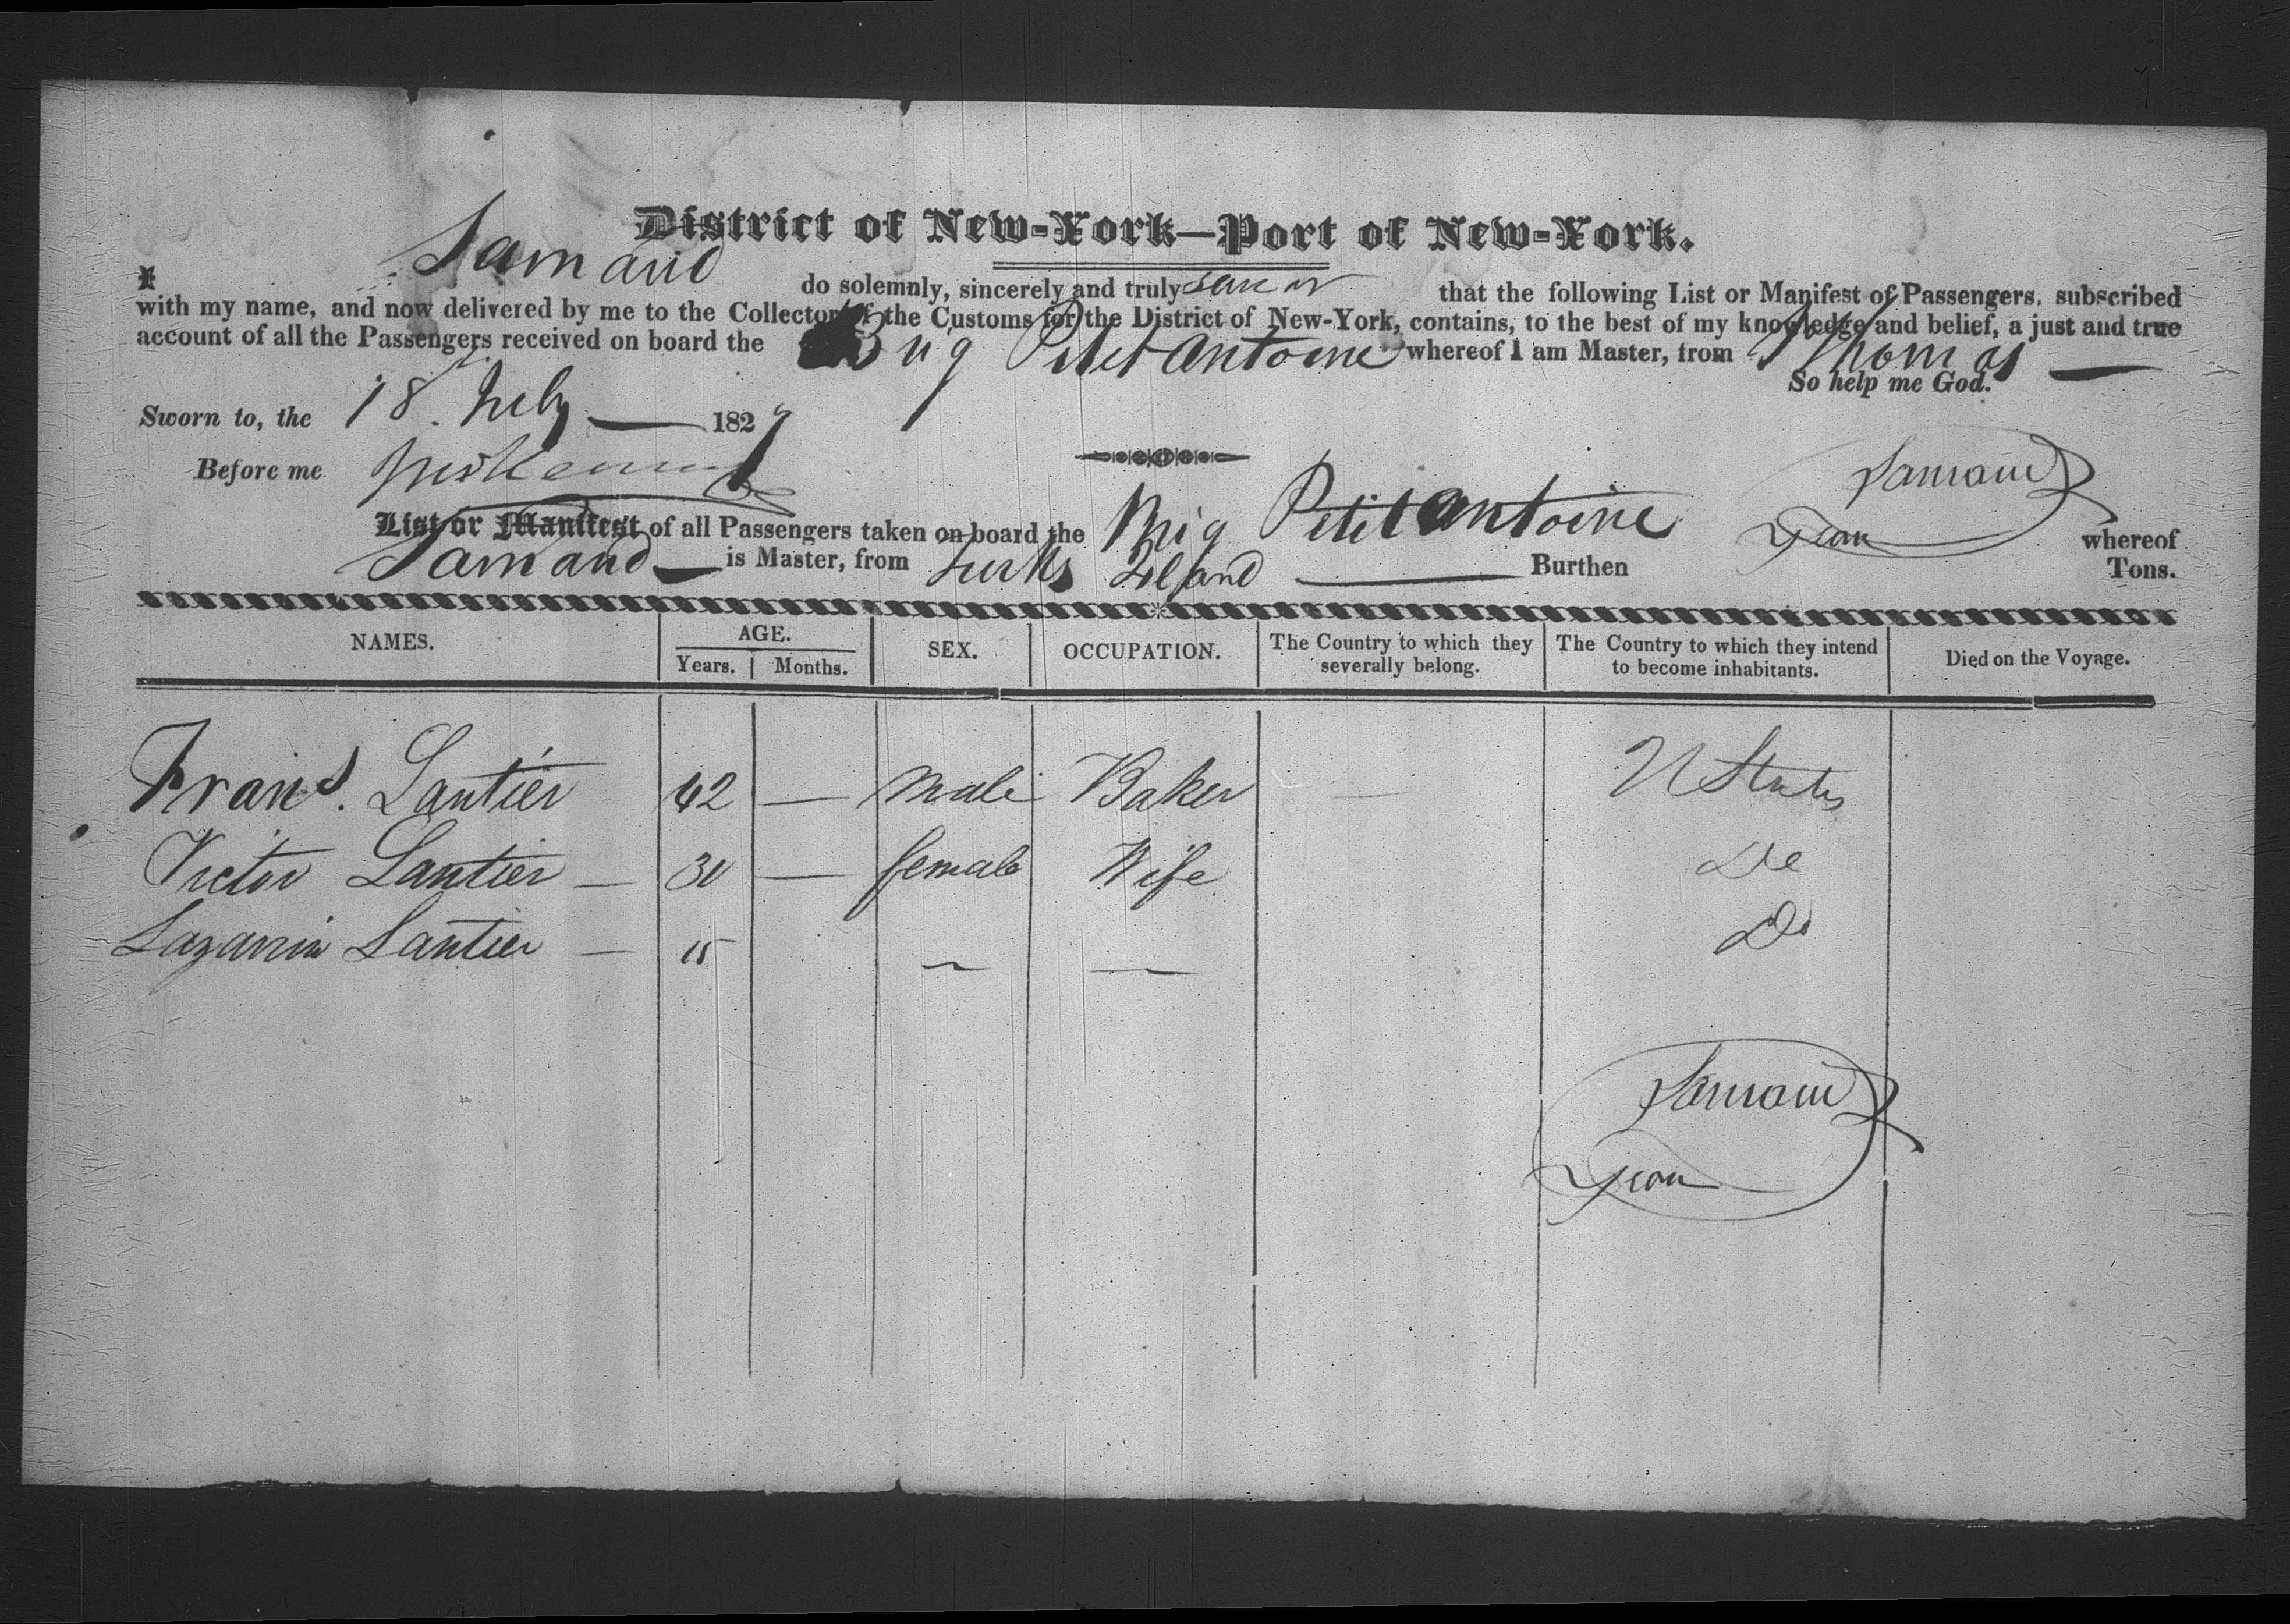 District of New-York—Port of New-York.
I Samaud do solemnly, sincerely and truly swear that the following List or Manifest of Passengers, subscribed
with my name, and now delivered by me to the Collector of the Customs for the District of New-York, contains, to the best of my knowledge and belief, a just and true
account of all the Passengers received on board the Brig Petit Antoine whereof I am Master, from St Thomas
So help me God.
Sworn to, the 18 July 1829
Before me
Samaud
Jean
List or Manifest of all Passengers taken on board the Brig Petit Antoine whereof
Samaud is Master, from Turks Island Burthen Tons.
NAMES. AGE. Years. Months. SEX. OCCUPATION. The Country to which they severally belong. The Country to which they intend to become inhabitants. Died on the Voyage.
Frans. Lantier 42 — Male Baker — U States
Victor Lantier — 30 — female Wife Do
Lazarrin Lantier — 15 — — Do
Samaud
Jean